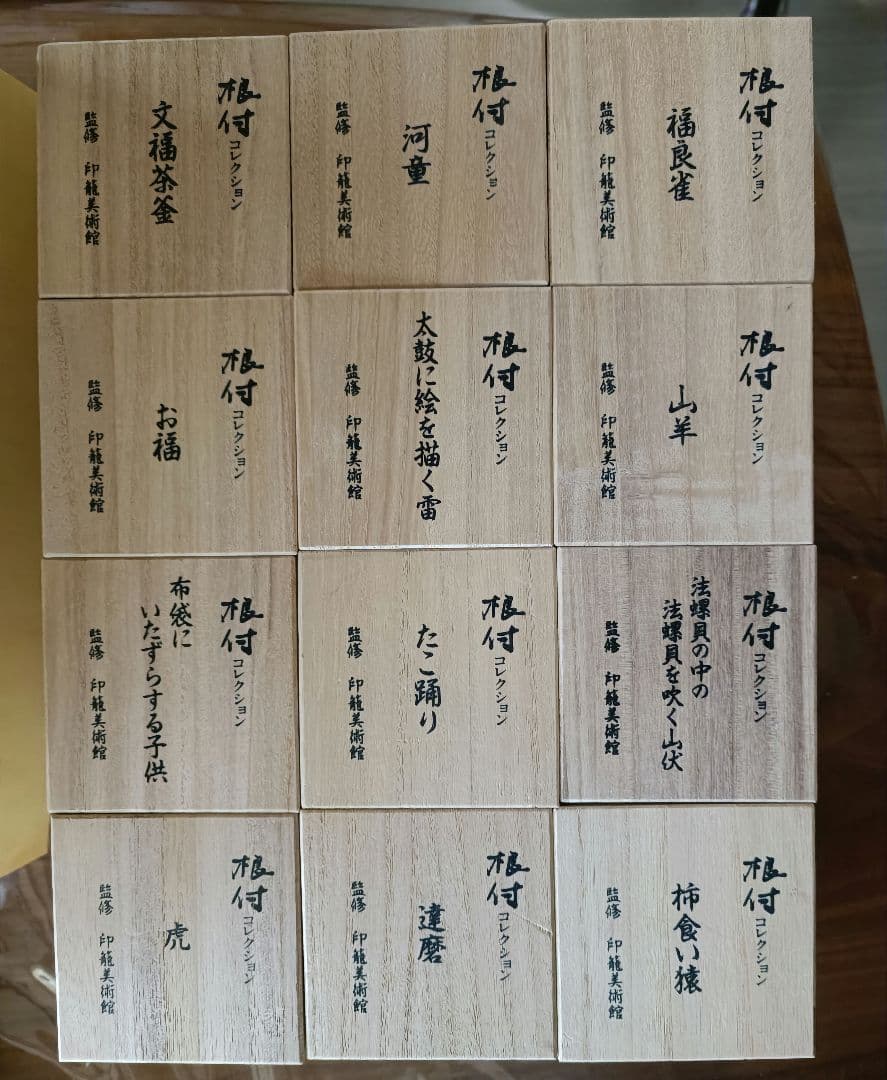 根付コレクション
文福茶釜
監修 印籠美術館
根付コレクション
河童
監修 印籠美術館
根付コレクション
福良雀
監修 印籠美術館
根付コレクション
お福
監修 印籠美術館
根付コレクション
太鼓に絵を描く雷
監修 印籠美術館
根付コレクション
山羊
監修 印籠美術館
根付コレクション
布袋に
いたずらする子供
監修 印籠美術館
根付コレクション
たこ踊り
監修 印籠美術館
根付コレクション
法螺貝の中の
法螺貝を吹く山伏
監修 印籠美術館
根付コレクション
虎
監修 印籠美術館
根付コレクション
達磨
監修 印籠美術館
根付コレクション
柿食い猿
監修 印籠美術館